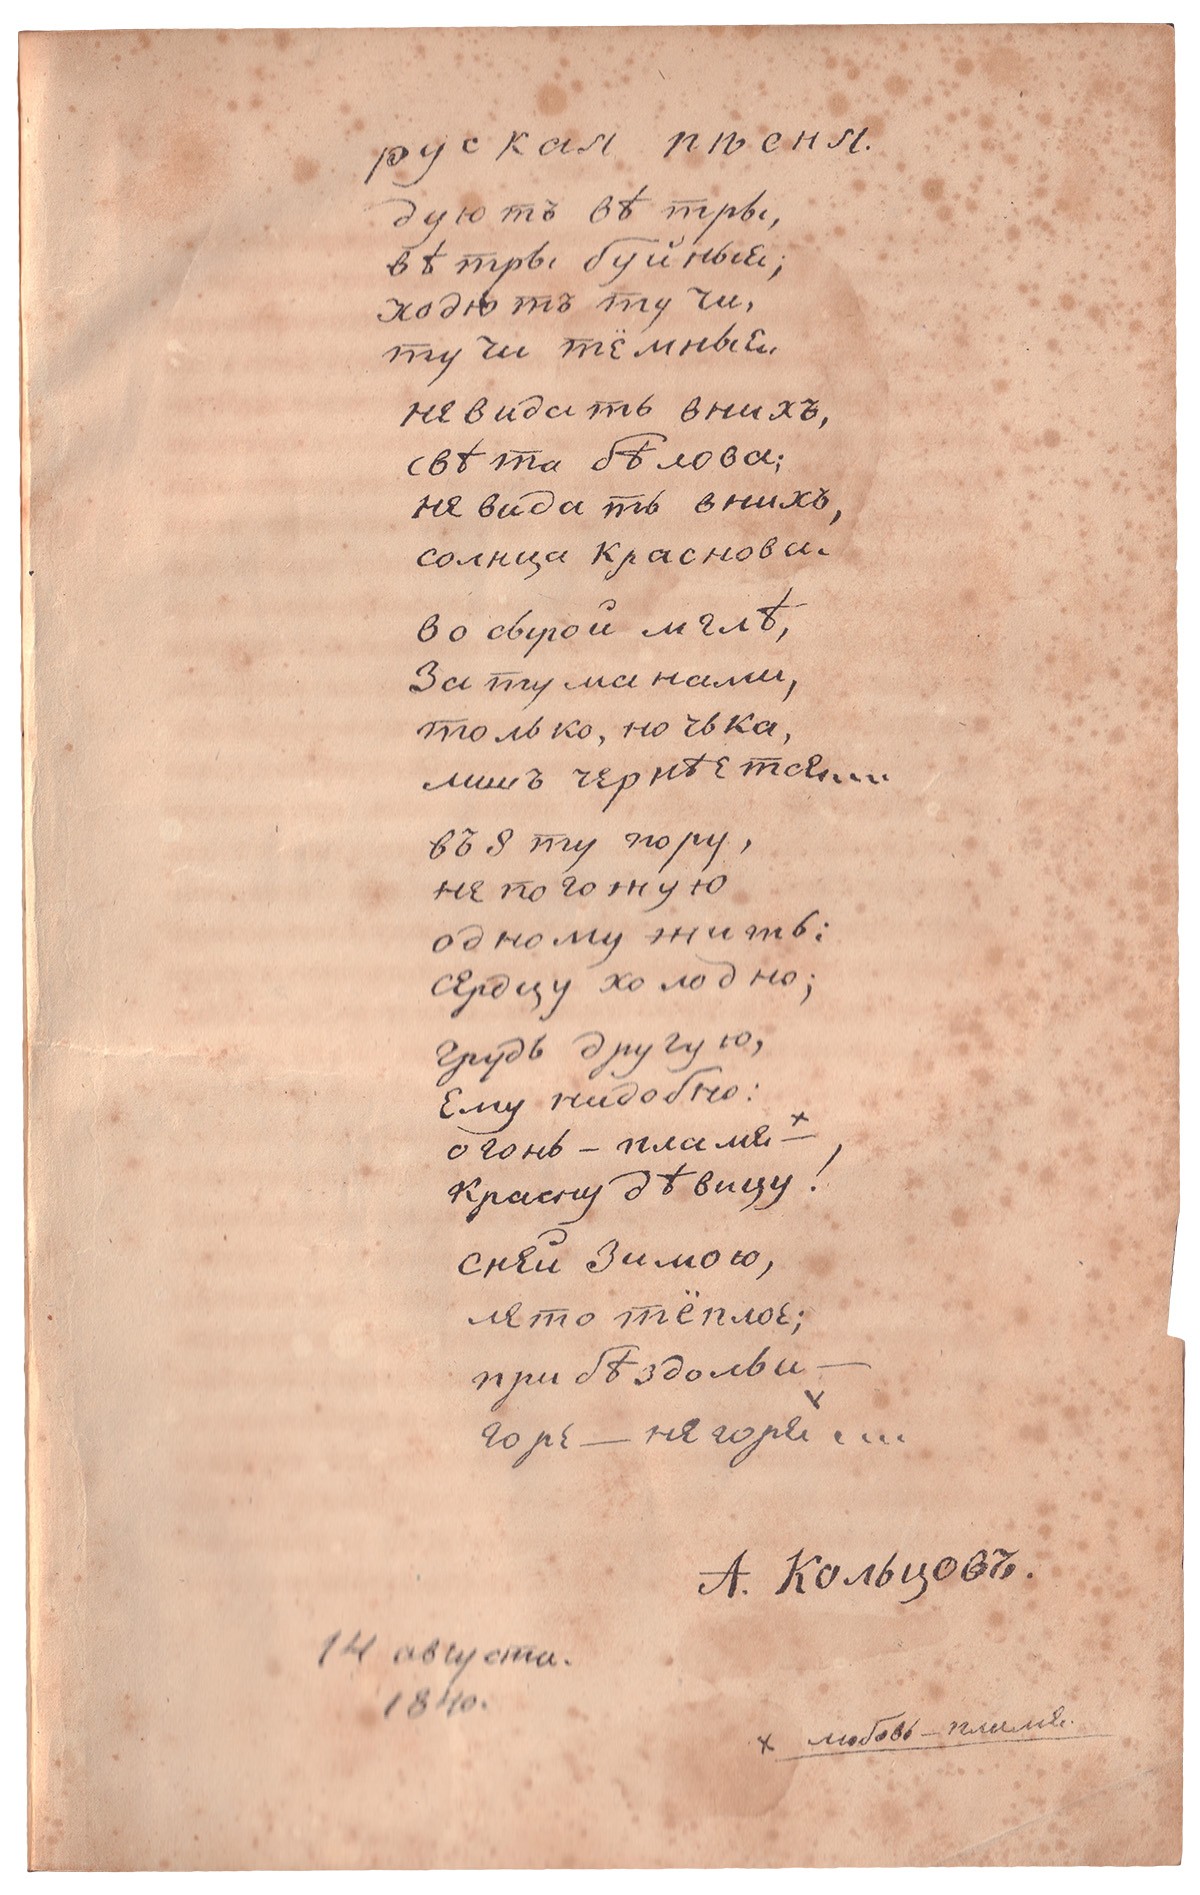 руская пѣсня.
дуютъ вѣтры,
вѣтры буйные;
ходютъ тучи,
тучи тёмные.
не видать в нихъ,
свѣта бѣлова;
не видать в нихъ,
солнца краснова.
во сырой мглѣ,
За туманами,
только, ночька,
лишъ чернѣетсе....
въ эту пору,
не погожую
одному жить:
сердцу холодно;
грудь другую,
ему надобно:
огонь – пламе ×,
красну дѣвицу!
с ней Зимою,
лето тёплое;
при бѣздольи —
горе — не горе × ....
А. Кольцовъ.
14 августа.
1840.
× любовь – пламе.